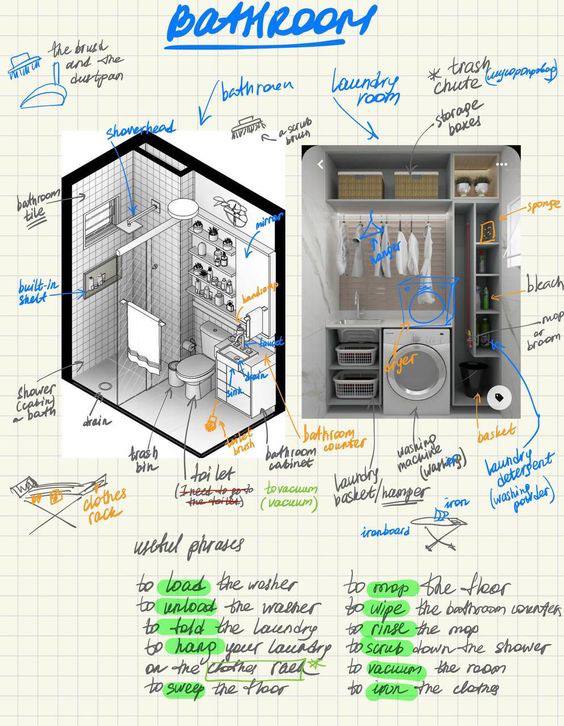 BATHROOM
the brush
and the
dustpan
showerhead
bathroom
a scrub
brush
laundry
room
* trash
chute
(мусоропровод)
storage
boxes
bathroom
tile
mirror
hanger
sponge
built-in
shelf
bleach
mop
or
broom
dryer
faucet
drain
sink
shower
(cabin)
a bath
drain
trash
bin
toilet
brush
toilet
(I need to go
to the toilet)
bathroom
cabinet
bathroom
counter
to vacuum
(vacuum)
laundry
basket/hamper
washing
machine
(washer)
basket
laundry
detergent
(washing
powder)
clothes
rack
iron
ironboard
useful phrases
to load the washer
to unload the washer
to fold the laundry
to hang your laundry
on the clothes rack *
to sweep the floor
to mop the floor
to wipe the bathroom counter
to rinse the mop
to scrub down the shower
to vacuum the room
to iron the clothes